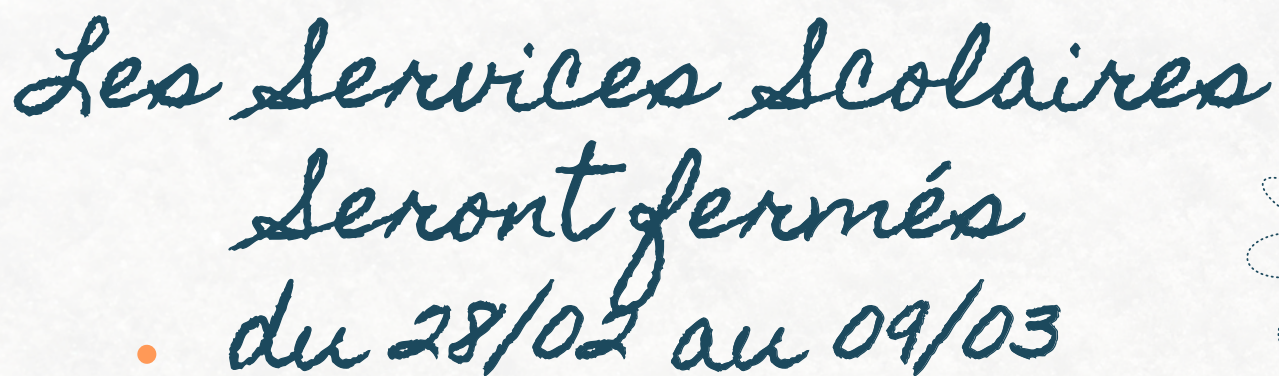 Les Services Scolaires
Seront fermés
du 28/02 au 09/03